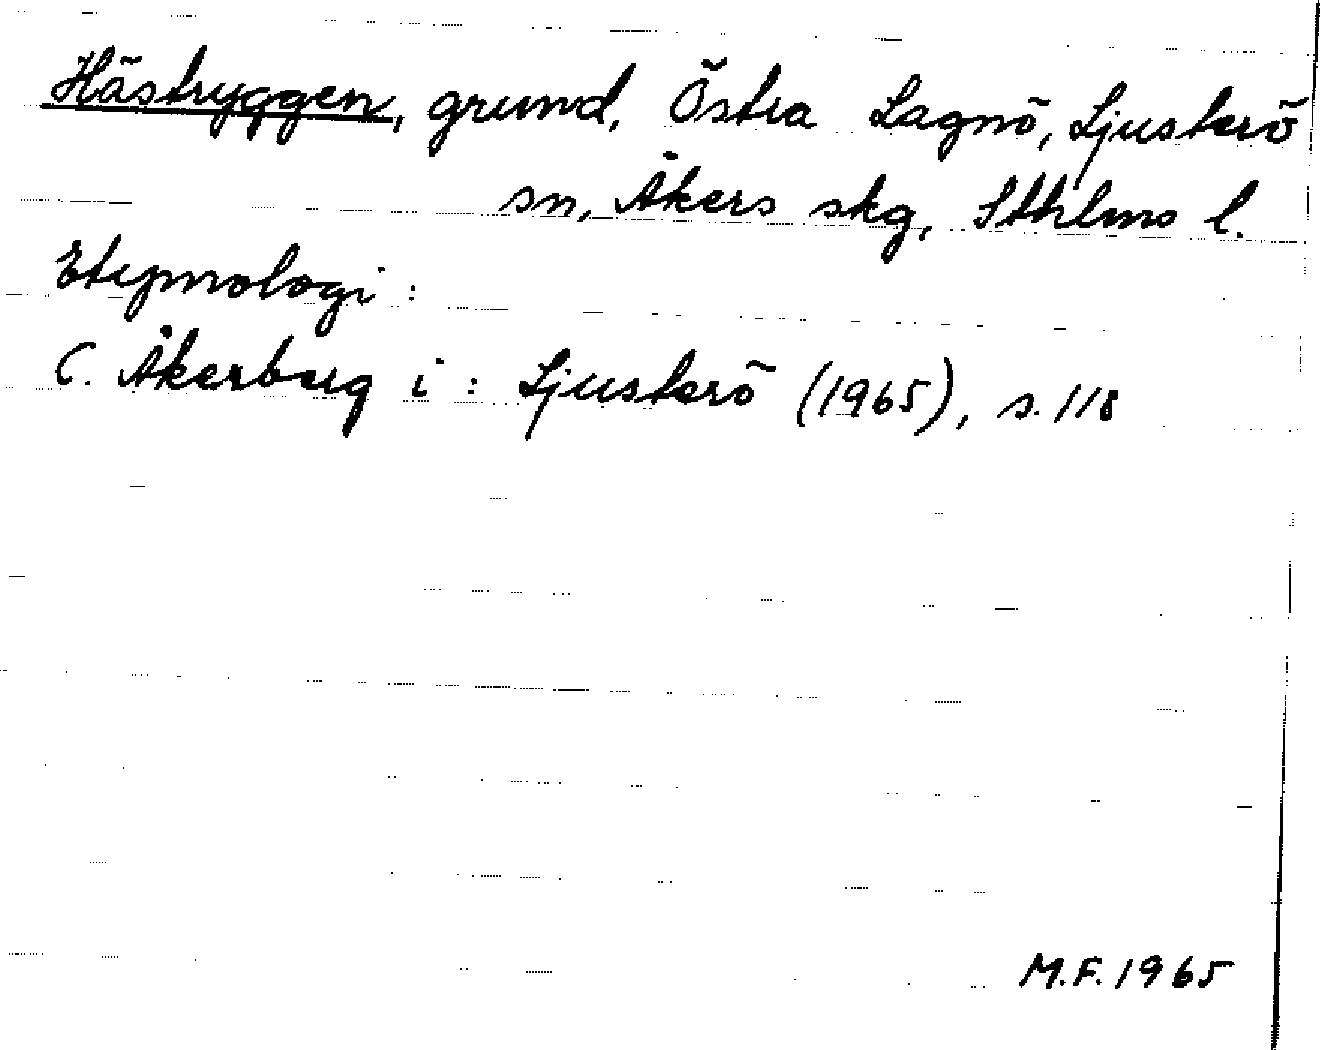 Hästryggen, grund, Östra Lagnö, Ljusterö
sn, Åkers skg, Sthlms l.
Etymologi:
C. Åkerberg i: Ljusterö (1965), s. 118
M.F. 1965